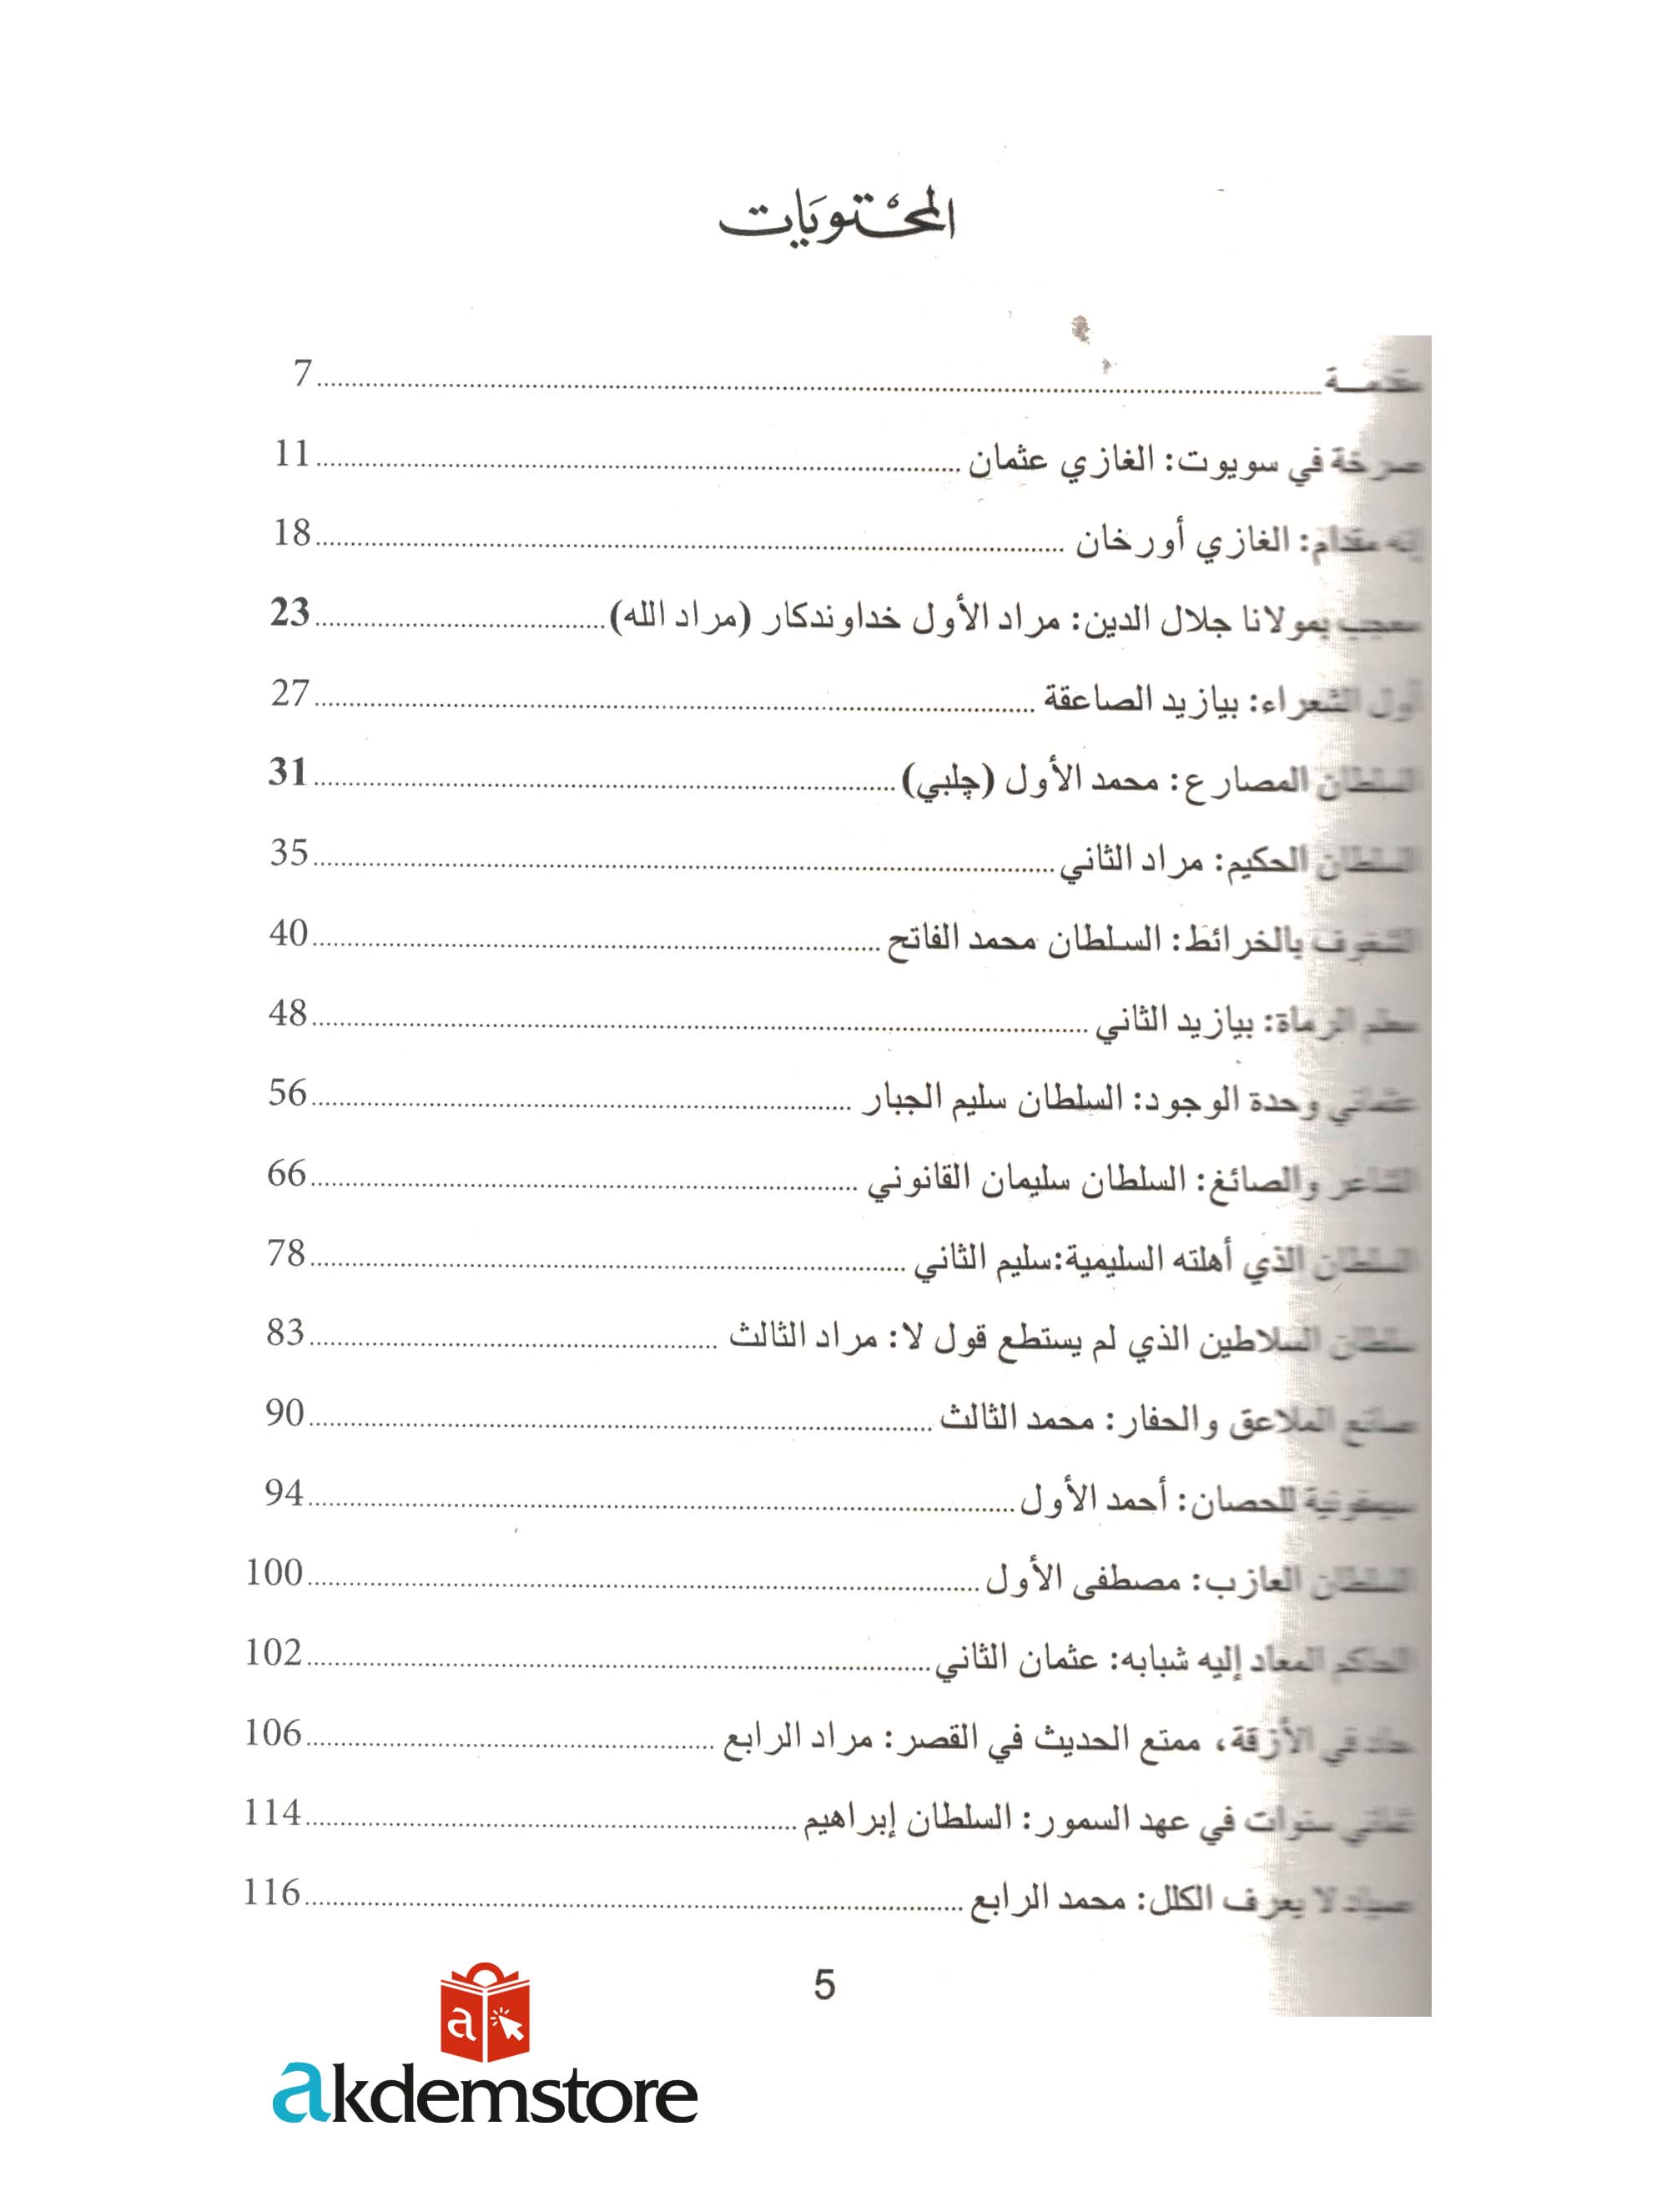 المحْتويَات
مقدمــة 7
صرخة في سويوت: الغازي عثمان 11
إنه مقدام: الغازي أورخان 18
معجب بمولانا جلال الدين: مراد الأول خداوندكار (مراد الله) 23
أول الشعراء: بيازيد الصاعقة 27
السلطان المصارع: محمد الأول (چلبي) 31
السلطان الحكيم: مراد الثاني 35
الشغوف بالخرائط: السلطان محمد الفاتح 40
معلم الرماة: بيازيد الثاني 48
عثماني وحدة الوجود: السلطان سليم الجبار 56
الشاعر والصائغ: السلطان سليمان القانوني 66
السلطان الذي أهلته السليمية:سليم الثاني 78
سلطان السلاطين الذي لم يستطع قول لا: مراد الثالث 83
صانع الملاعق والحفار: محمد الثالث 90
سيمفونية للحصان: أحمد الأول 94
السلطان العازب: مصطفى الأول 100
الحاكم المعاد إليه شبابه: عثمان الثاني 102
حاد في الأزقة، ممتع الحديث في القصر: مراد الرابع 106
ثماني سنوات في عهد السمور: السلطان إبراهيم 114
صياد لا يعرف الكلل: محمد الرابع 116
5
a
akdemstore